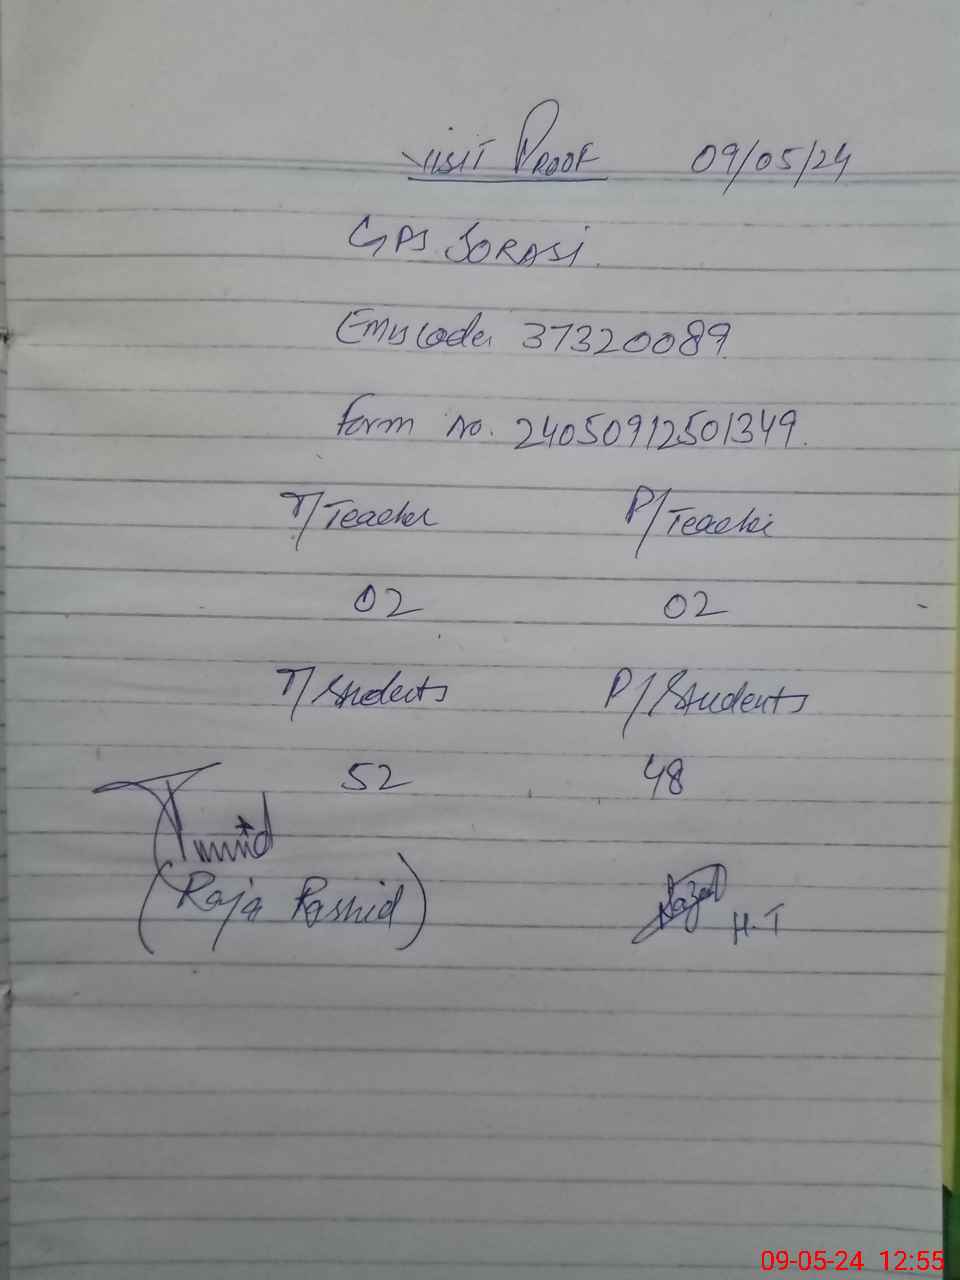 VISIT PROOF 09/05/24
GPS SORASI.
Emis Code. 37320089.
Form No. 24050912501349.
T/Teacher P/Teacher
02 02
T/Students P/Students
52 48
(Raja Rashid)
H.T
09-05-24 12:55